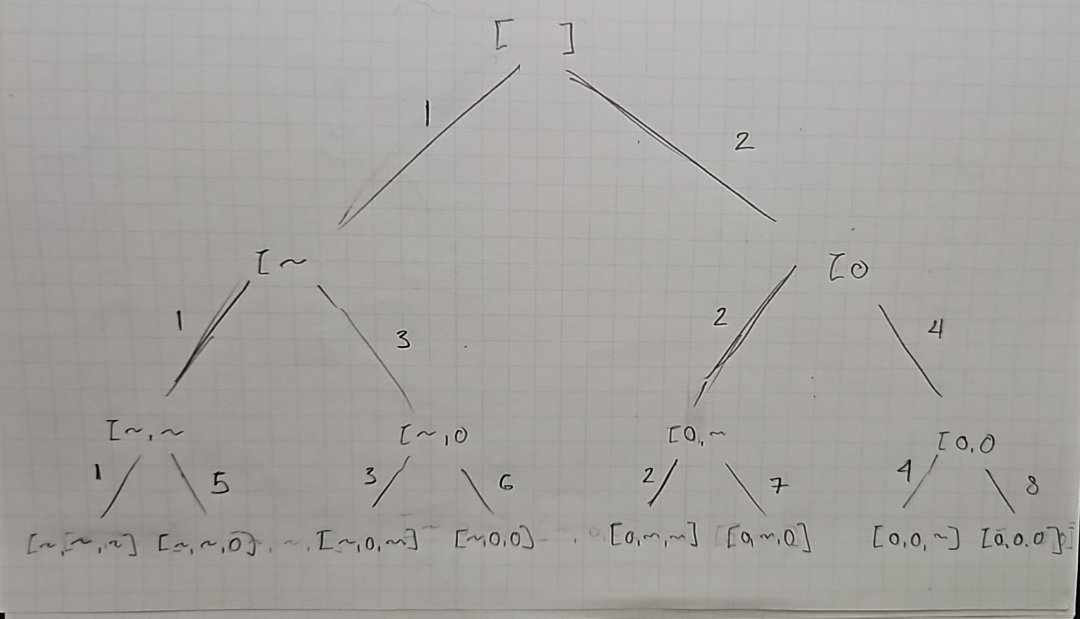 [ ]
1 2
[~ [0
1 3 2 4
[~,~ [~,0 [0,~ [0,0
1 5 3 6 2 7 4 8
[~,~,~] [~,~,0] [~,0,~] [~,0,0] [0,~,~] [0,~,0] [0,0,~] [0,0,0]